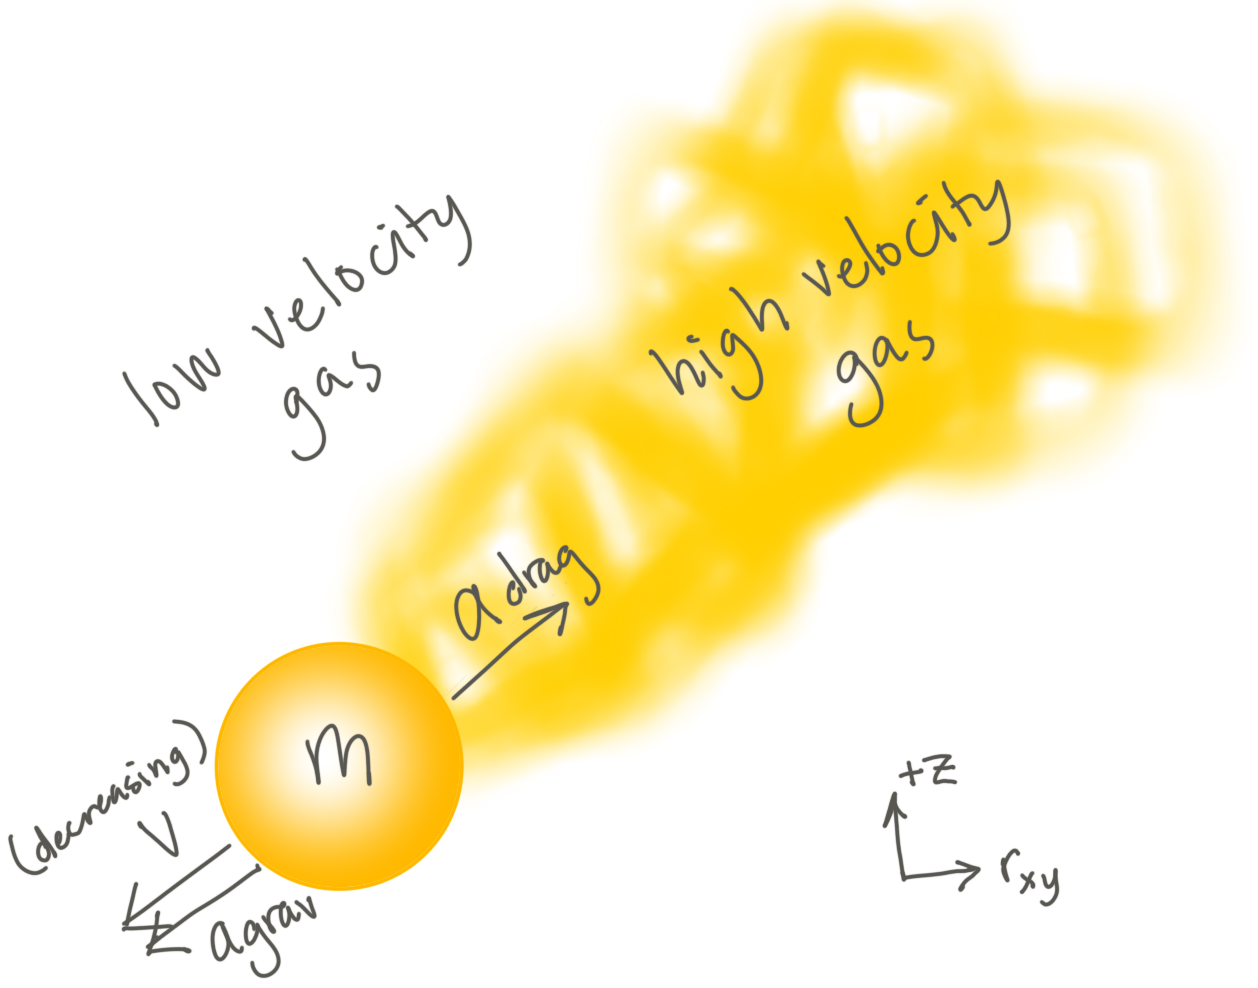 low velocity
gas
high velocity
gas
a drag
m
(decreasing)
V
agrav
+z
rxy